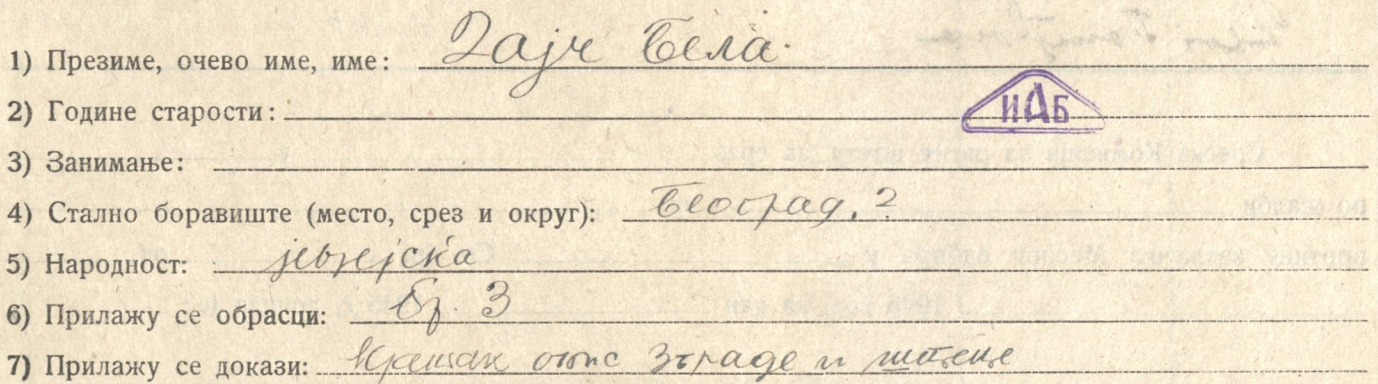 1) Презиме, очево име, име: Зајч Бела
ИАБ
2) Године старости:
3) Занимање:
4) Стално боравиште (место, срез и округ): Београд, ?
5) Народност: јеврејска
6) Прилажу се обрасци: бр. 3
7) Прилажу се докази: Кратак опис зграде и штете